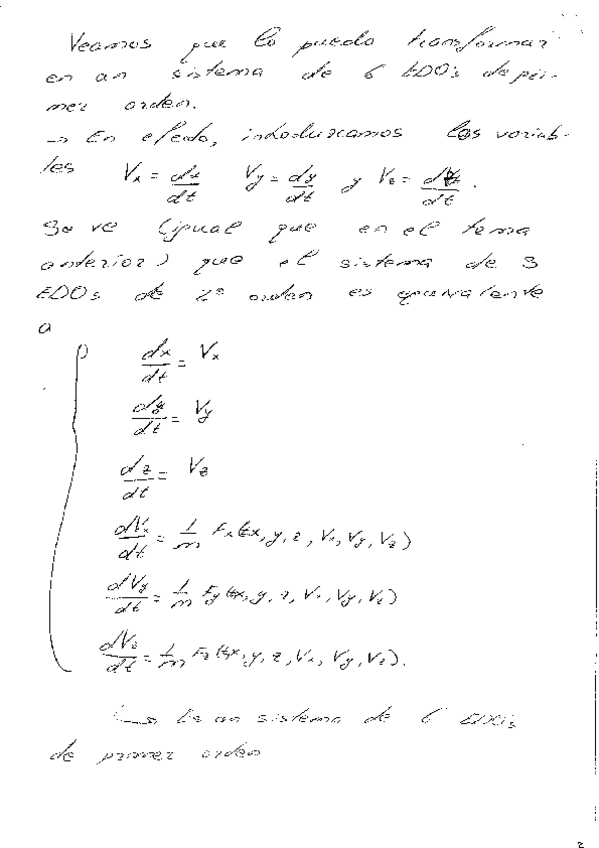 Veamos que lo puedo transformar
en un sistema de 6 EDOs de pri-
mer orden.
→ En efecto, introduzcamos las variab-
les Vx = dx/dt Vy = dy/dt y Vz = dz/dt.
Se ve (igual que en el tema
anterior) que el sistema de 3
EDOs de 2º orden es equivalente
a
dx/dt = Vx
dy/dt = Vy
dz/dt = Vz
dVx/dt = 1/m Fx(t,x,y,z,Vx,Vy,Vz)
dVy/dt = 1/m Fy(t,x,y,z,Vx,Vy,Vz)
dVz/dt = 1/m Fz(t,x,y,z,Vx,Vy,Vz).
↳ Es un sistema de 6 EDOs
de primer orden
2